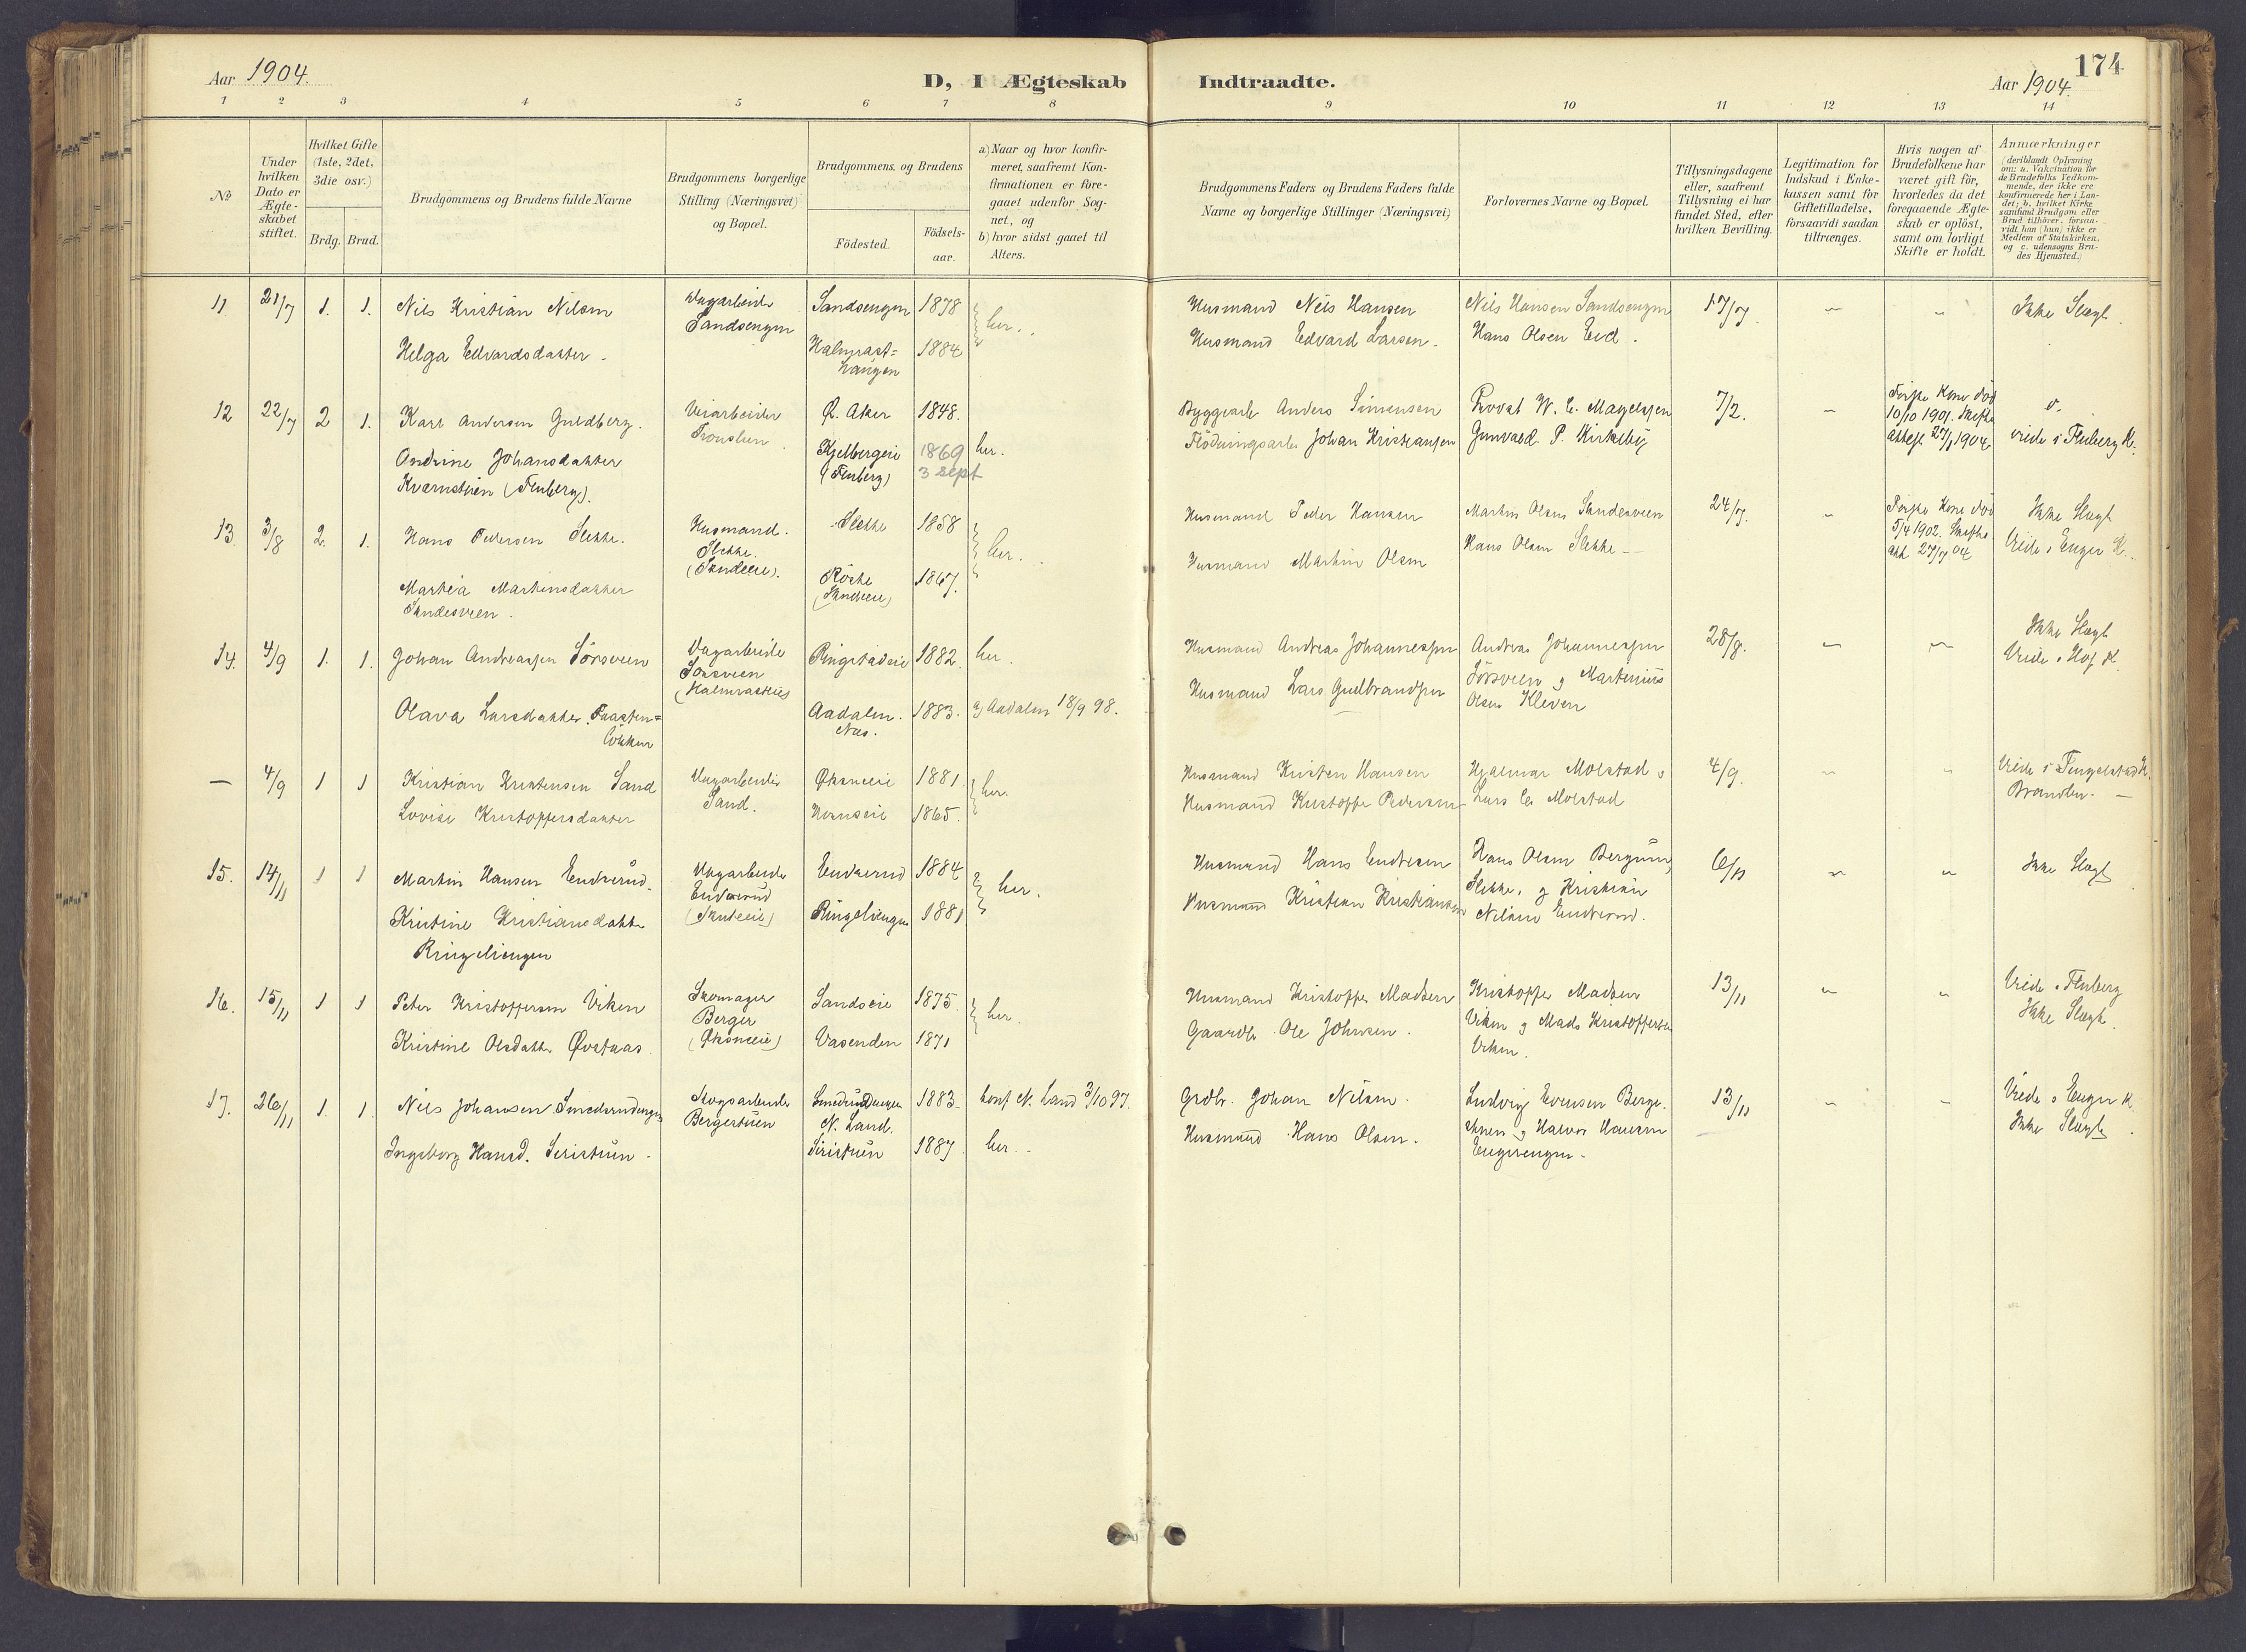 174
Aar 1904.
D, I Ægteskab Indtraadte.
Aar 1904.
1 2 3 4 5 6 7 8 9 10 11 12 13 14
№
Under hvilken Dato er Ægteskabet stiftet.
Hvilket Gifte (1ste, 2det, 3die osv.)
Brdg. Brud.
Brudgommens og Brudens fulde Navne
Brudgommens borgerlige Stilling (Næringsvei) og Bopæl.
Brudgommens og Brudens
Födested.
Födsels-aar.
a) Naar og hvor konfirmeret, saafremt Konfirmationen er foregaaet udenfor Sognet, og
b) hvor sidst gaaet til Alters.
Brudgommens Faders og Brudens Faders fulde Navne og borgerlige Stillinger (Næringsvei)
Forlovernes Navne og Bopæl.
Tillysningsdagene eller, saafremt Tillysning ei har fundet Sted, efter hvilken Bevilling.
Legitimation for Indskud i Enkekassen samt for Giftetilladelse, forsaavidt saadan tiltrænges.
Hvis nogen af Brudefolkene har været gift för, hvorledes da det foregaaende Ægteskab er oplöst, samt om lovligt Skifte er holdt.
Anmærkninger (deriblandt Oplysning om: a. Vakcination for de Brudefolks Vedkommende, der ikke ere konfirmerede her i Landet; b. hvilket Kirkesamfund Brudgom eller Brud tilhörer, forsaavidt han (hun) ikke er Medlem af Statskirken, og c. udensogns Brudes Hjemsted.)
11 21/7 1. 1. Nils Kristian Nilsen Dagarbeider Sandsengen Sandsengen 1878 her. Husmand Nils Hansen Nils Hansen Sandsengen 17/7. Ikke Slægt.
Helga Edvardsdatter 1884 Husmand Edvard Larsen. Hans Olsen Eid.
12 22/7 2 1. Karl Andersen Guldberg. Veiarbeider Ø. Aker 1848. Anders Simensen Provst W. C. Magelssen 7/2. Første Kone død 10/10 1901. Skifte attest 27/1 1904
Andrine Johansdatter (Fluberg) 1869 3 sept her. Flödningsarb. Johan Kristiansen Gunvald P. Kirkeby viede i Fluberg K.
Kvernstuen (Fluberg).
13. 3/8 2. 1. Hans Pedersen Slette. Husmand. Slette. Slette 1858 her. Husmand Peder Hansen Martin Olsen Sandesveen 24/7. Første Kone død 5/4 1902. Skifte att. 27/7 04 Ikke Slægt
Martea Martinsdatter 1867. Husmand Martin Olsen Hans Olsen Slette Viede i Enger K.
Sandesveen.
14. 4/9 1. 1. Johan Andreassen Sörsveen Dagarbeider Sörsveen Ringstadeie 1882. her. Husmand Andreas Johannessen Andreas Johannessen 28/8. Ikke Slægt
Viede i Hof K.
Olava Larsdatter Aadalen. 1883. a) Aadalen 18/9 98. Husmand Lars Gudbrandsen Sörsveen og Martinius Olsen Kleven
— 4/9 1 1 Kristian Kristensen Sand Dagarbeider Sand. 1881 her. Husmand Kristen Hansen Hjalmar Molstad og 4/9. Viede i Tingelstad K. Brandbu.
Lovise Kristoffersdatter 1865. Husmand Kristoffer Pedersen Lars Molstad
15. 14/11 1 1 Martin Hansen Endrerud. Dagarbeider Endrerud Endrerud 1884 her. Husmand Hans Endresen Hans Olsen 6/11 Ikke Slægt
Kristine Kristiansdatter Ringeliengen 1881 Husmand Kristian Kristiansen Slette, og Kristian Nilsen Endrerud.
Ringeliengen
16. 15/11 1 1 Peter Kristoffersen Viken Skomager Berger Sandseie 1875. her. Husmand Kristoffer Madsen Kristoffer Madsen 13/11 Viede i Fluberg
Kristine Olsdatter Øvstaas Vasenden 1871 Gaardbr. Ole Johnsen. Viken og Mads Kristoffersen Viken. Ikke Slægt.
17. 26/11 1. 1. Nils Johansen Smedsrudengen Skogsarbeider Bergerstuen Smedsrudengen N. Land. 1883. konf. N. Land 3/10 97. Grdbr. Johan Nilsen. Ludvig Evensen 13/11 Viede i Enger K.
Ingeborg Hansd. Seristuen Seristuen 1887 her. Husmand Hans Olsen. og Halvor Hansen Engerengen. Ikke Slægt.